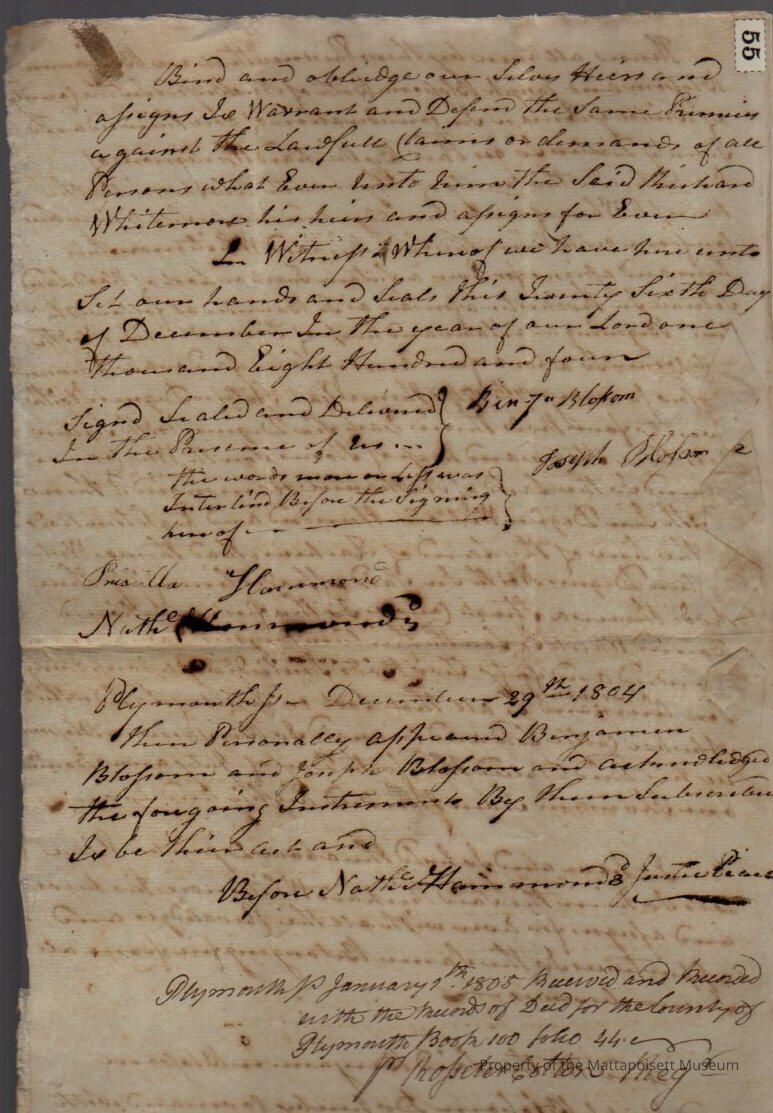 55
Bind and oblidge our Selves Heirs and
assigns To Warrant and Defend the Same Premises
against the Lawfull Claims or demands of all
Persons what Ever unto him the Said Richard
Whitemore his heirs and assigns for Ever
In Witness Whereof we have here unto
Set our hands and Seals this Twenty Sixth Day
of December In the year of our Lord one
Thousand Eight Hundred and four
Signd Sealed and Delivered
In the Presence of us
Benjn Blossom
Joseph Blossom
the words more or Less was
Interlind Before the Signing
hereof
Priscilla Hammond
Nathl Hammond
Plymouth ss December 29th 1804
then Personally appeared Benjamin
Blossom and Joseph Blossom and acknowledged
the foregoing Instrument By them Subscribed
To be their act and
Before Nathl Hammond Justice Peace
Plymouth ss January 1805 Received and Recorded
with the Records of Deed for the County of
Plymouth Book 100 folio 44
pr Rosseter Cotton Regr
Property of the Mattapoisett Museum